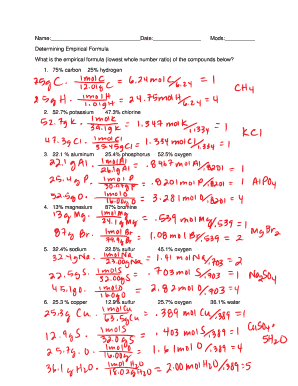 Name:____________________ Date:____________ Mods:________
Determining Empirical Formula
What is the empirical formula (lowest whole number ratio) of the compounds below?
1. 75% carbon 25% hydrogen
75g C. 1mol C / 12.01g C = 6.24 mol C/6.24 = 1
25g H. 1mol H / 1.01g H = 24.75 mol H/6.24 = 4
CH4
2. 52.7% potassium 47.3% chlorine
52.7g K. 1molK / 39.1g K = 1.347 mol K/1.334 = 1
47.3g Cl. 1molCl / 35.45g Cl = 1.334 mol Cl/1.334 = 1
KCl
3. 22.1% aluminum 25.4% phosphorus 52.5% oxygen
22.1g Al. 1mol Al = .8467 mol Al/.8201 = 1
25.4g P. 1mol P = .8201 mol P/.8201 = 1
52.5g O. 1mol O / 16.00g O = 3.281 mol O/.8201 = 4
AlPO4
4. 13% magnesium 87% bromine
13g Mg. 1mol Mg = .539 mol Mg/.539 = 1
87g Br. 1mol Br / 79.9g Br = 1.08 mol Br/.539 = 2
MgBr2
5. 32.4% sodium 22.5% sulfur 45.1% oxygen
32.4g Na. 1mol Na = 1.41 mol Na/.703 = 2
22.5g S. 1mol S / 32.00g S = .703 mol S/.703 = 1
45.1g O. 1mol O / 16.00g O = 2.82 mol O/.703 = 4
Na2SO4
6. 25.3% copper 12.9% sulfur 25.7% oxygen 36.1% water
25.3g Cu. 1mol Cu / 63.5g Cu = .389 mol Cu/.389 = 1
12.9g S. 1mol S / 32.00g S = .403 mol S/.389 = 1
25.7g O. 1mol O / 16.00g = 1.61 mol O/.389 = 4
36.1g H2O. 1mol H2O / 18.02g H2O = 2.00 mol H2O/.389 = 5
CuSO4 · 5H2O